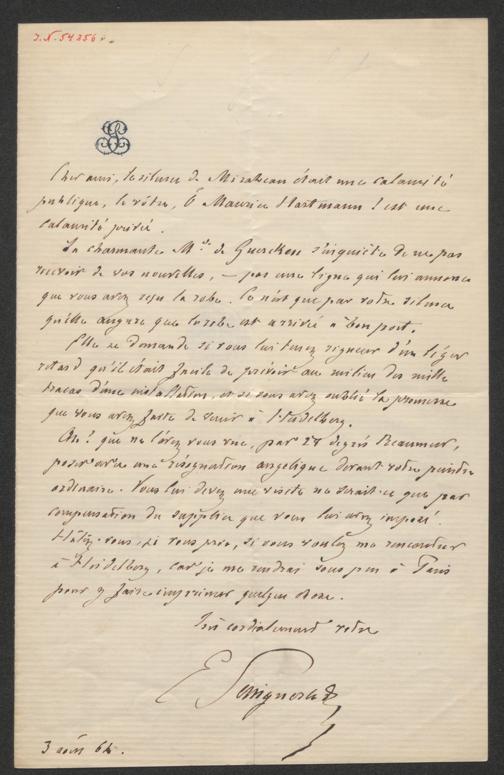 I.N. 54356
Cher ami, le silence de Mirabeau était une calamité
publique, le vôtre, ô Maurice Hartmann! est une
calamité privée.
La charmante Mlle de Guercken s'inquiète de ne pas
recevoir de vos nouvelles, — pas une ligne qui lui annonce
que vous avez reçu la robe. Ce n'est que par votre silence
qu'elle augure que la robe est arrivée à bon port.
Elle se demande si vous lui tenez rigueur d'un léger
retard qu'il était facile de prévoir au milieu des mille
tracas d'une installation, et si vous avez oublié la promesse
que vous avez faite de venir à Heidelberg.
Ah! que ne l'avez vous vue, par 28 degrés Réaumur,
poser avec une résignation angélique devant votre peintre
ordinaire. Vous lui devez une visite ne serait-ce que par
compensation du supplice que vous lui avez imposé.
Hâtez-vous, je vous prie, si vous voulez me rencontrer
à Heidelberg, car je me rendrai sous peu à Paris
pour y faire imprimer quelque chose.
Très cordialement votre
E Seinguerlet
3 août 64.